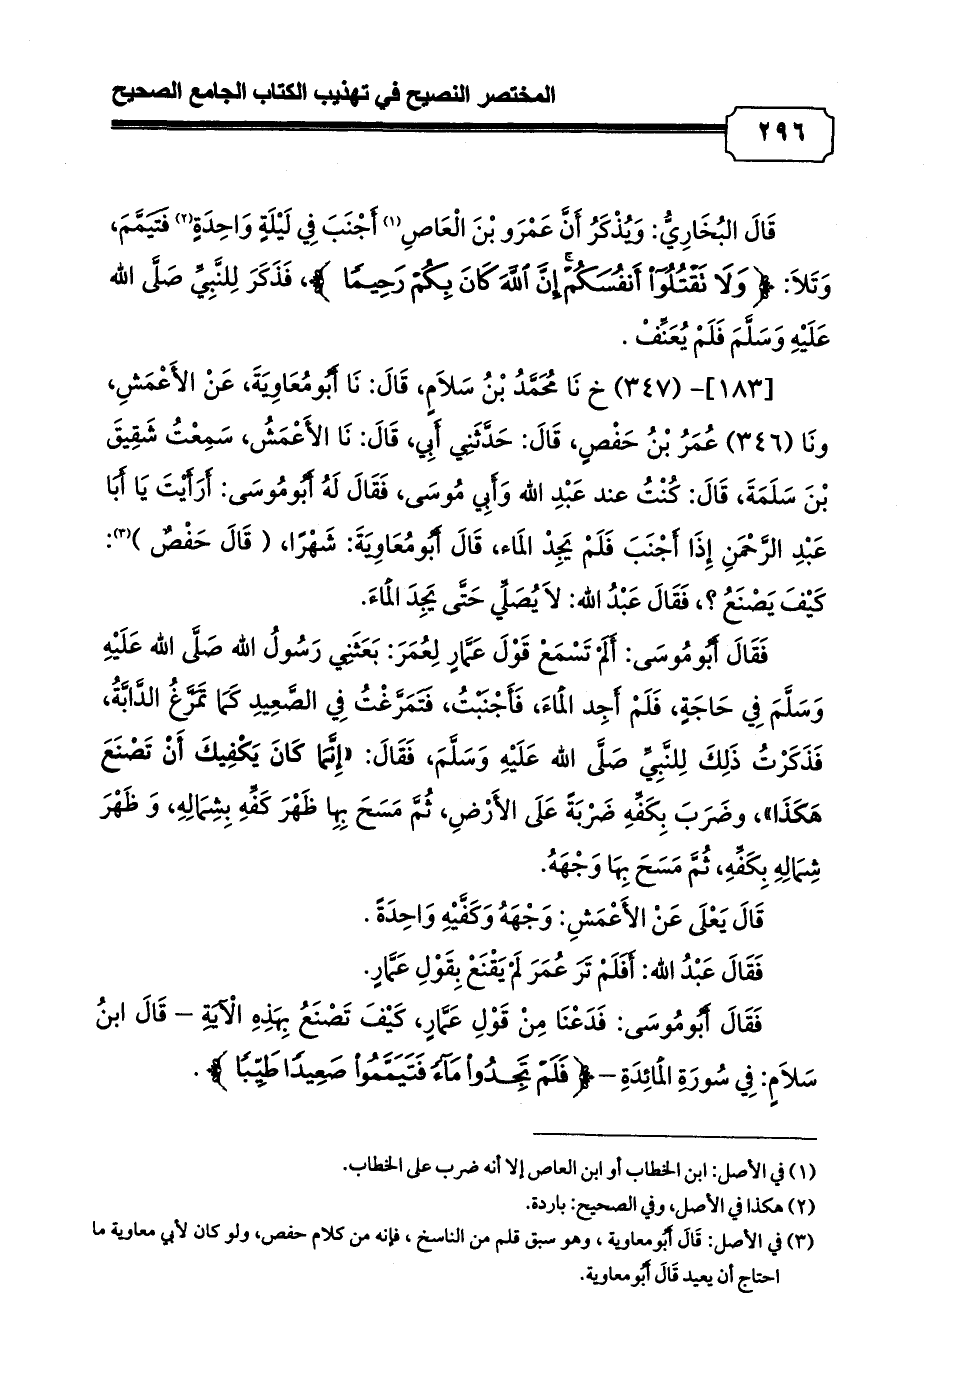 المختصر النصيح في تهذيب الكتاب الجامع الصحيح
٢٩٦
قَالَ البُخَارِيُّ: وَيُذْكَرُ أَنَّ عَمْرَو بْنَ الْعَاصِ(١) أَجْنَبَ فِي لَيْلَةٍ وَاحِدَةٍ(٢) فَتَيَمَّمَ،
وَتَلاَ: ﴿وَلَا نَقْتُلُوٓا۟ أَنفُسَكُمْ ۚ إِنَّ ٱللَّهَ كَانَ بِكُمْ رَحِيمًا﴾، فَذَكَرَ لِلنَّبِيِّ صَلَّى الله
عَلَيْهِ وَسَلَّمَ فَلَمْ يُعَنِّفْ .
[١٨٣]- (٣٤٧) خ نَا مُحَمَّدُ بْنُ سَلاَمٍ، قَالَ: نَا أَبُومُعَاوِيَةَ، عَنْ الأَعْمَشِ،
ونَا (٣٤٦) عُمَرُ بْنُ حَفْصٍ، قَالَ: حَدَّثَنِي أَبِي، قَالَ: نَا الأَعْمَشُ، سَمِعْتُ شَقِيقَ
بْنَ سَلَمَةَ، قَالَ: كُنْتُ عند عَبْدِ الله وَأَبِي مُوسَى، فَقَالَ لَهُ أَبُومُوسَى: أَرَأَيْتَ يَا أَبَا
عَبْدِ الرَّحْمَنِ إِذَا أَجْنَبَ فَلَمْ يَجِدْ المَاء، قَالَ أَبُومُعَاوِيَةَ: شَهْرًا، ( قَالَ حَفْصٌ )(٣):
كَيْفَ يَصْنَعُ ؟، فَقَالَ عَبْدُ الله: لاَ يُصَلِّي حَتَّى يَجِدَ المَاءَ.
فَقَالَ أَبُومُوسَى: أَلَمْ تَسْمَعْ قَوْلَ عَمَّارٍ لِعُمَرَ: بَعَثَنِي رَسُولُ الله صَلَّى الله عَلَيْهِ
وَسَلَّمَ فِي حَاجَةٍ، فَلَمْ أَجِد المَاءَ، فَأَجْنَبْتُ، فَتَمَرَّغْتُ فِي الصَّعِيدِ كَمَا تَمَرَّغُ الدَّابَّةُ،
فَذَكَرْتُ ذَلِكَ لِلنَّبِيِّ صَلَّى الله عَلَيْهِ وَسَلَّمَ، فَقَالَ: «إِنَّمَا كَانَ يَكْفِيكَ أَنْ تَصْنَعَ
هَكَذَا»، وضَرَبَ بِكَفِّهِ ضَرْبَةً عَلَى الأَرْضِ، ثُمَّ مَسَحَ بِهِا ظَهْرَ كَفِّهِ بِشِمَالِهِ، وَ ظَهْرَ
شِمَالِهِ بِكَفِّهِ، ثُمَّ مَسَحَ بِهَا وَجْهَهُ.
قَالَ يَعْلَى عَنْ الأَعْمَشِ: وَجْهَهُ وَكَفَّيْهِ وَاحِدَةً .
فَقَالَ عَبْدُ الله: أَفَلَمْ تَرَ عُمَرَ لَمْ يَقْنَعْ بِقَوْلِ عَمَّارٍ.
فَقَالَ أَبُومُوسَى: فَدَعْنَا مِنْ قَوْلِ عَمَّارٍ، كَيْفَ تَصْنَعُ بِهَذِهِ الْآيَةِ – قَالَ ابنُ
سَلاَمٍ: فِي سُورَةِ المَائِدَةِ –﴿فَلَمْ تَجِدُوا۟ مَآءً فَتَيَمَّمُوا۟ صَعِيدًا طَيِّبًا﴾ .
(١) في الأصل: ابن الخطاب أو ابن العاص إلا أنه ضرب على الخطاب.
(٢) هكذا في الأصل، وفي الصحيح: باردة.
(٣) في الأصل: قَالَ أَبُومعاوية ، وهو سبق قلم من الناسخ ، فإنه من كلام حفص، ولو كان لأبي معاوية ما
احتاج أن يعيد قَالَ أَبُومعاوية.